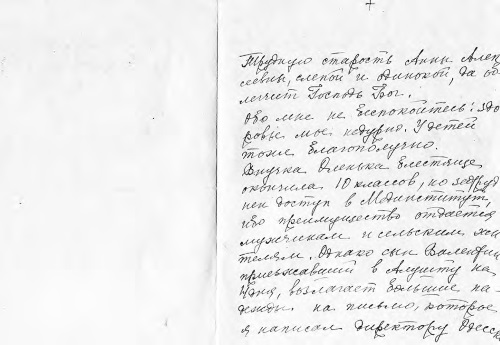 +
Трудную старость Анны Алек
сеевны, слепой и одинокой, да об
легчит Господь Бог.
Обо мне не беспокойтесь: здо
ровье мое недурно. У детей
тоже благополучно.
Внучка Оленька блестяще
окончила 10 классов, но затруд
нен доступ в Мединститут,
ибо преимущество отдается
мужчинам и сельским жи
телям. Однако сын Валентин
приезжавший в Алушту на
дня, возлагает большие на-
дежды на письмо, которое
я написал директору Одесск